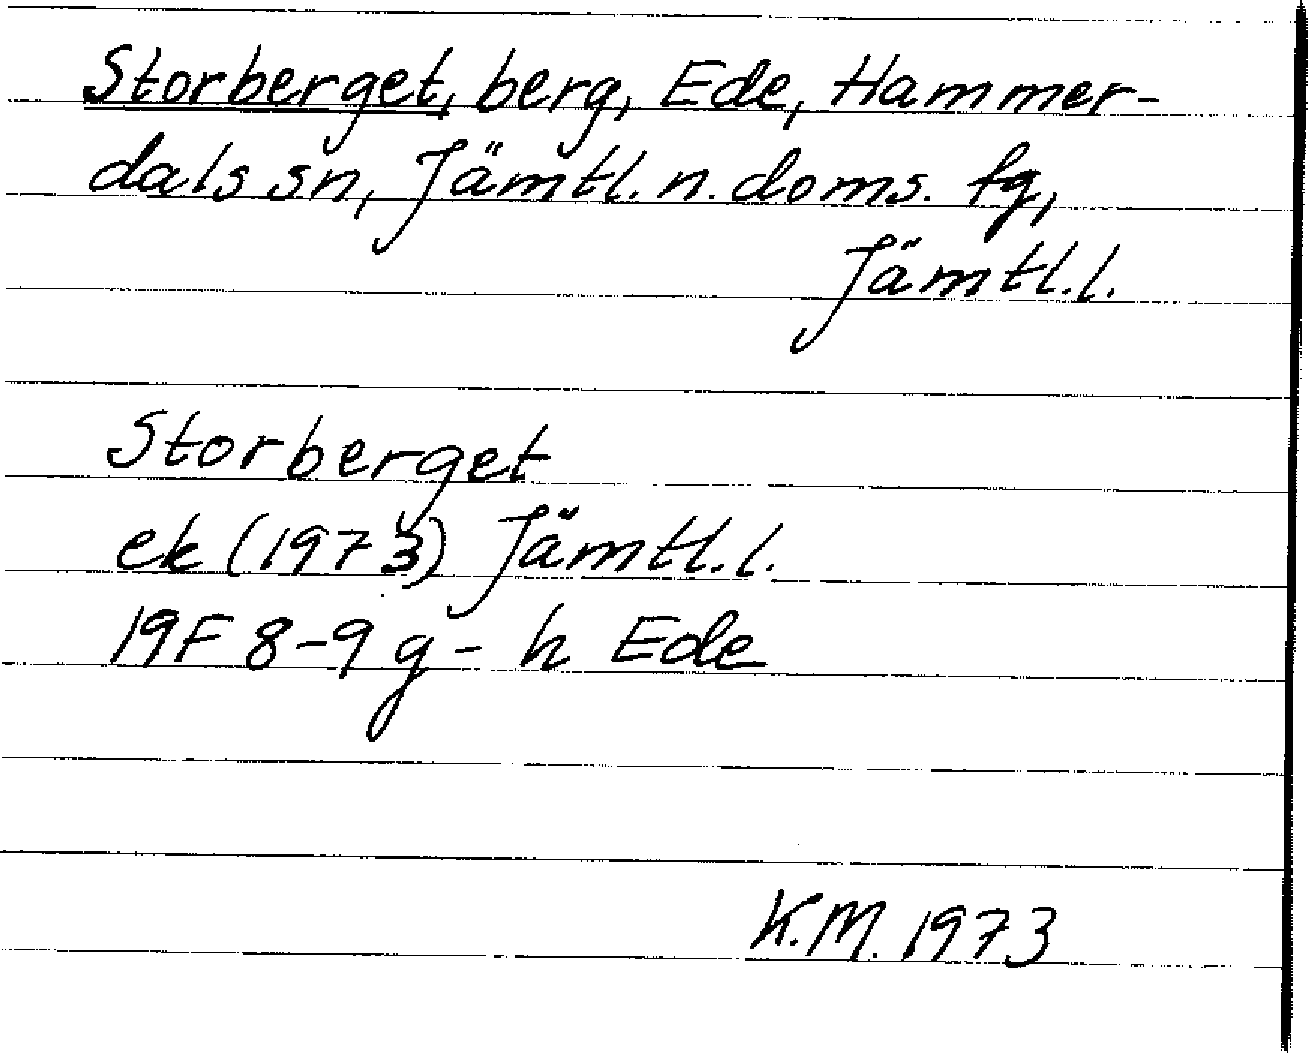 Storberget, berg, Ede, Hammer-
dals sn, Jämtl. n. doms. fg,
Jämtl.l.
Storberget
ek (1973) Jämtl.l.
19F 8-9 g-h Ede
K.M. 1973